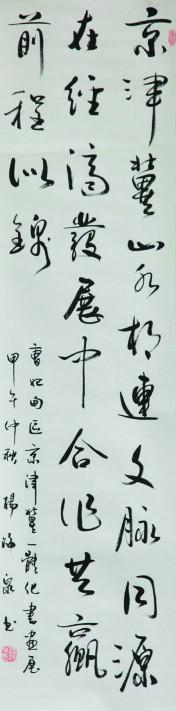 京津冀山水相連文脉同源
在經濟發展中合作共贏
前程似錦
曹妃甸區京津冀一體化書畫展
甲午仲秋楊海泉书